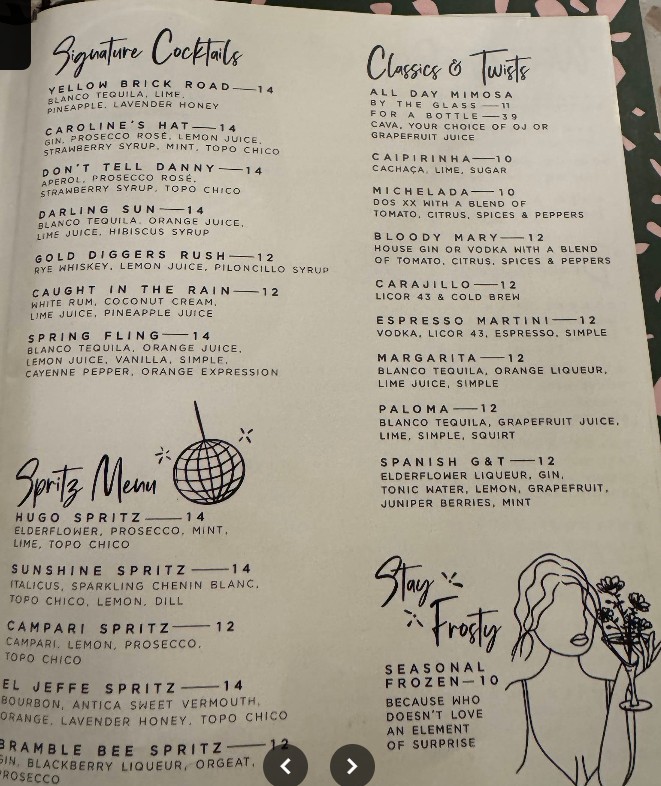 Signature Cocktails
YELLOW BRICK ROAD—14
BLANCO TEQUILA, LIME,
PINEAPPLE, LAVENDER HONEY
CAROLINE'S HAT—14
GIN, PROSECCO ROSÉ, LEMON JUICE,
STRAWBERRY SYRUP, MINT, TOPO CHICO
DON'T TELL DANNY—14
APEROL, PROSECCO ROSÉ,
STRAWBERRY SYRUP, TOPO CHICO
DARLING SUN—14
BLANCO TEQUILA, ORANGE JUICE,
LIME JUICE, HIBISCUS SYRUP
GOLD DIGGERS RUSH—12
RYE WHISKEY, LEMON JUICE, PILONCILLO SYRUP
CAUGHT IN THE RAIN—12
WHITE RUM, COCONUT CREAM,
LIME JUICE, PINEAPPLE JUICE
SPRING FLING—14
BLANCO TEQUILA, ORANGE JUICE,
LEMON JUICE, VANILLA, SIMPLE,
CAYENNE PEPPER, ORANGE EXPRESSION
Spritz Menu
HUGO SPRITZ—14
ELDERFLOWER, PROSECCO, MINT,
LIME, TOPO CHICO
SUNSHINE SPRITZ—14
ITALICUS, SPARKLING CHENIN BLANC,
TOPO CHICO, LEMON, DILL
CAMPARI SPRITZ—12
CAMPARI, LEMON, PROSECCO,
TOPO CHICO
EL JEFFE SPRITZ—14
BOURBON, ANTICA SWEET VERMOUTH,
ORANGE, LAVENDER HONEY, TOPO CHICO
BRAMBLE BEE SPRITZ—12
GIN, BLACKBERRY LIQUEUR, ORGEAT,
PROSECCO
Classics & Twists
ALL DAY MIMOSA
BY THE GLASS—11
FOR A BOTTLE—39
CAVA, YOUR CHOICE OF OJ OR
GRAPEFRUIT JUICE
CAIPIRINHA—10
CACHAÇA, LIME, SUGAR
MICHELADA—10
DOS XX WITH A BLEND OF
TOMATO, CITRUS, SPICES & PEPPERS
BLOODY MARY—12
HOUSE GIN OR VODKA WITH A BLEND
OF TOMATO, CITRUS, SPICES & PEPPERS
CARAJILLO—12
LICOR 43 & COLD BREW
ESPRESSO MARTINI—12
VODKA, LICOR 43, ESPRESSO, SIMPLE
MARGARITA—12
BLANCO TEQUILA, ORANGE LIQUEUR,
LIME JUICE, SIMPLE
PALOMA—12
BLANCO TEQUILA, GRAPEFRUIT JUICE,
LIME, SIMPLE, SQUIRT
SPANISH G&T—12
ELDERFLOWER LIQUEUR, GIN,
TONIC WATER, LEMON, GRAPEFRUIT,
JUNIPER BERRIES, MINT
Stay
Frosty
SEASONAL
FROZEN—10
BECAUSE WHO
DOESN'T LOVE
AN ELEMENT
OF SURPRISE